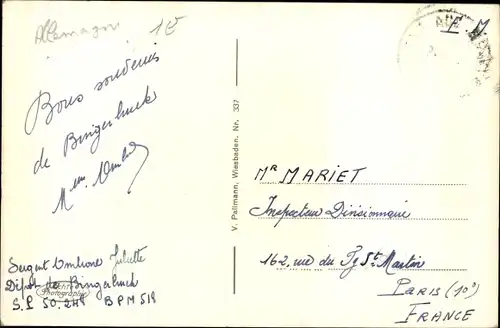 Allemagne 1E
F. M.
Bons souvenirs
de Bingerbruck
V. Pallmann, Wiesbaden. Nr. 337
Mr MARIET
Inspecteur Divisionnaire
162, rue du Fg St Martin
PARIS (10°)
FRANCE
Sergent Juliette
Dépôt de Bingerbruck
S.P 50.248 BPM 519
Photographie